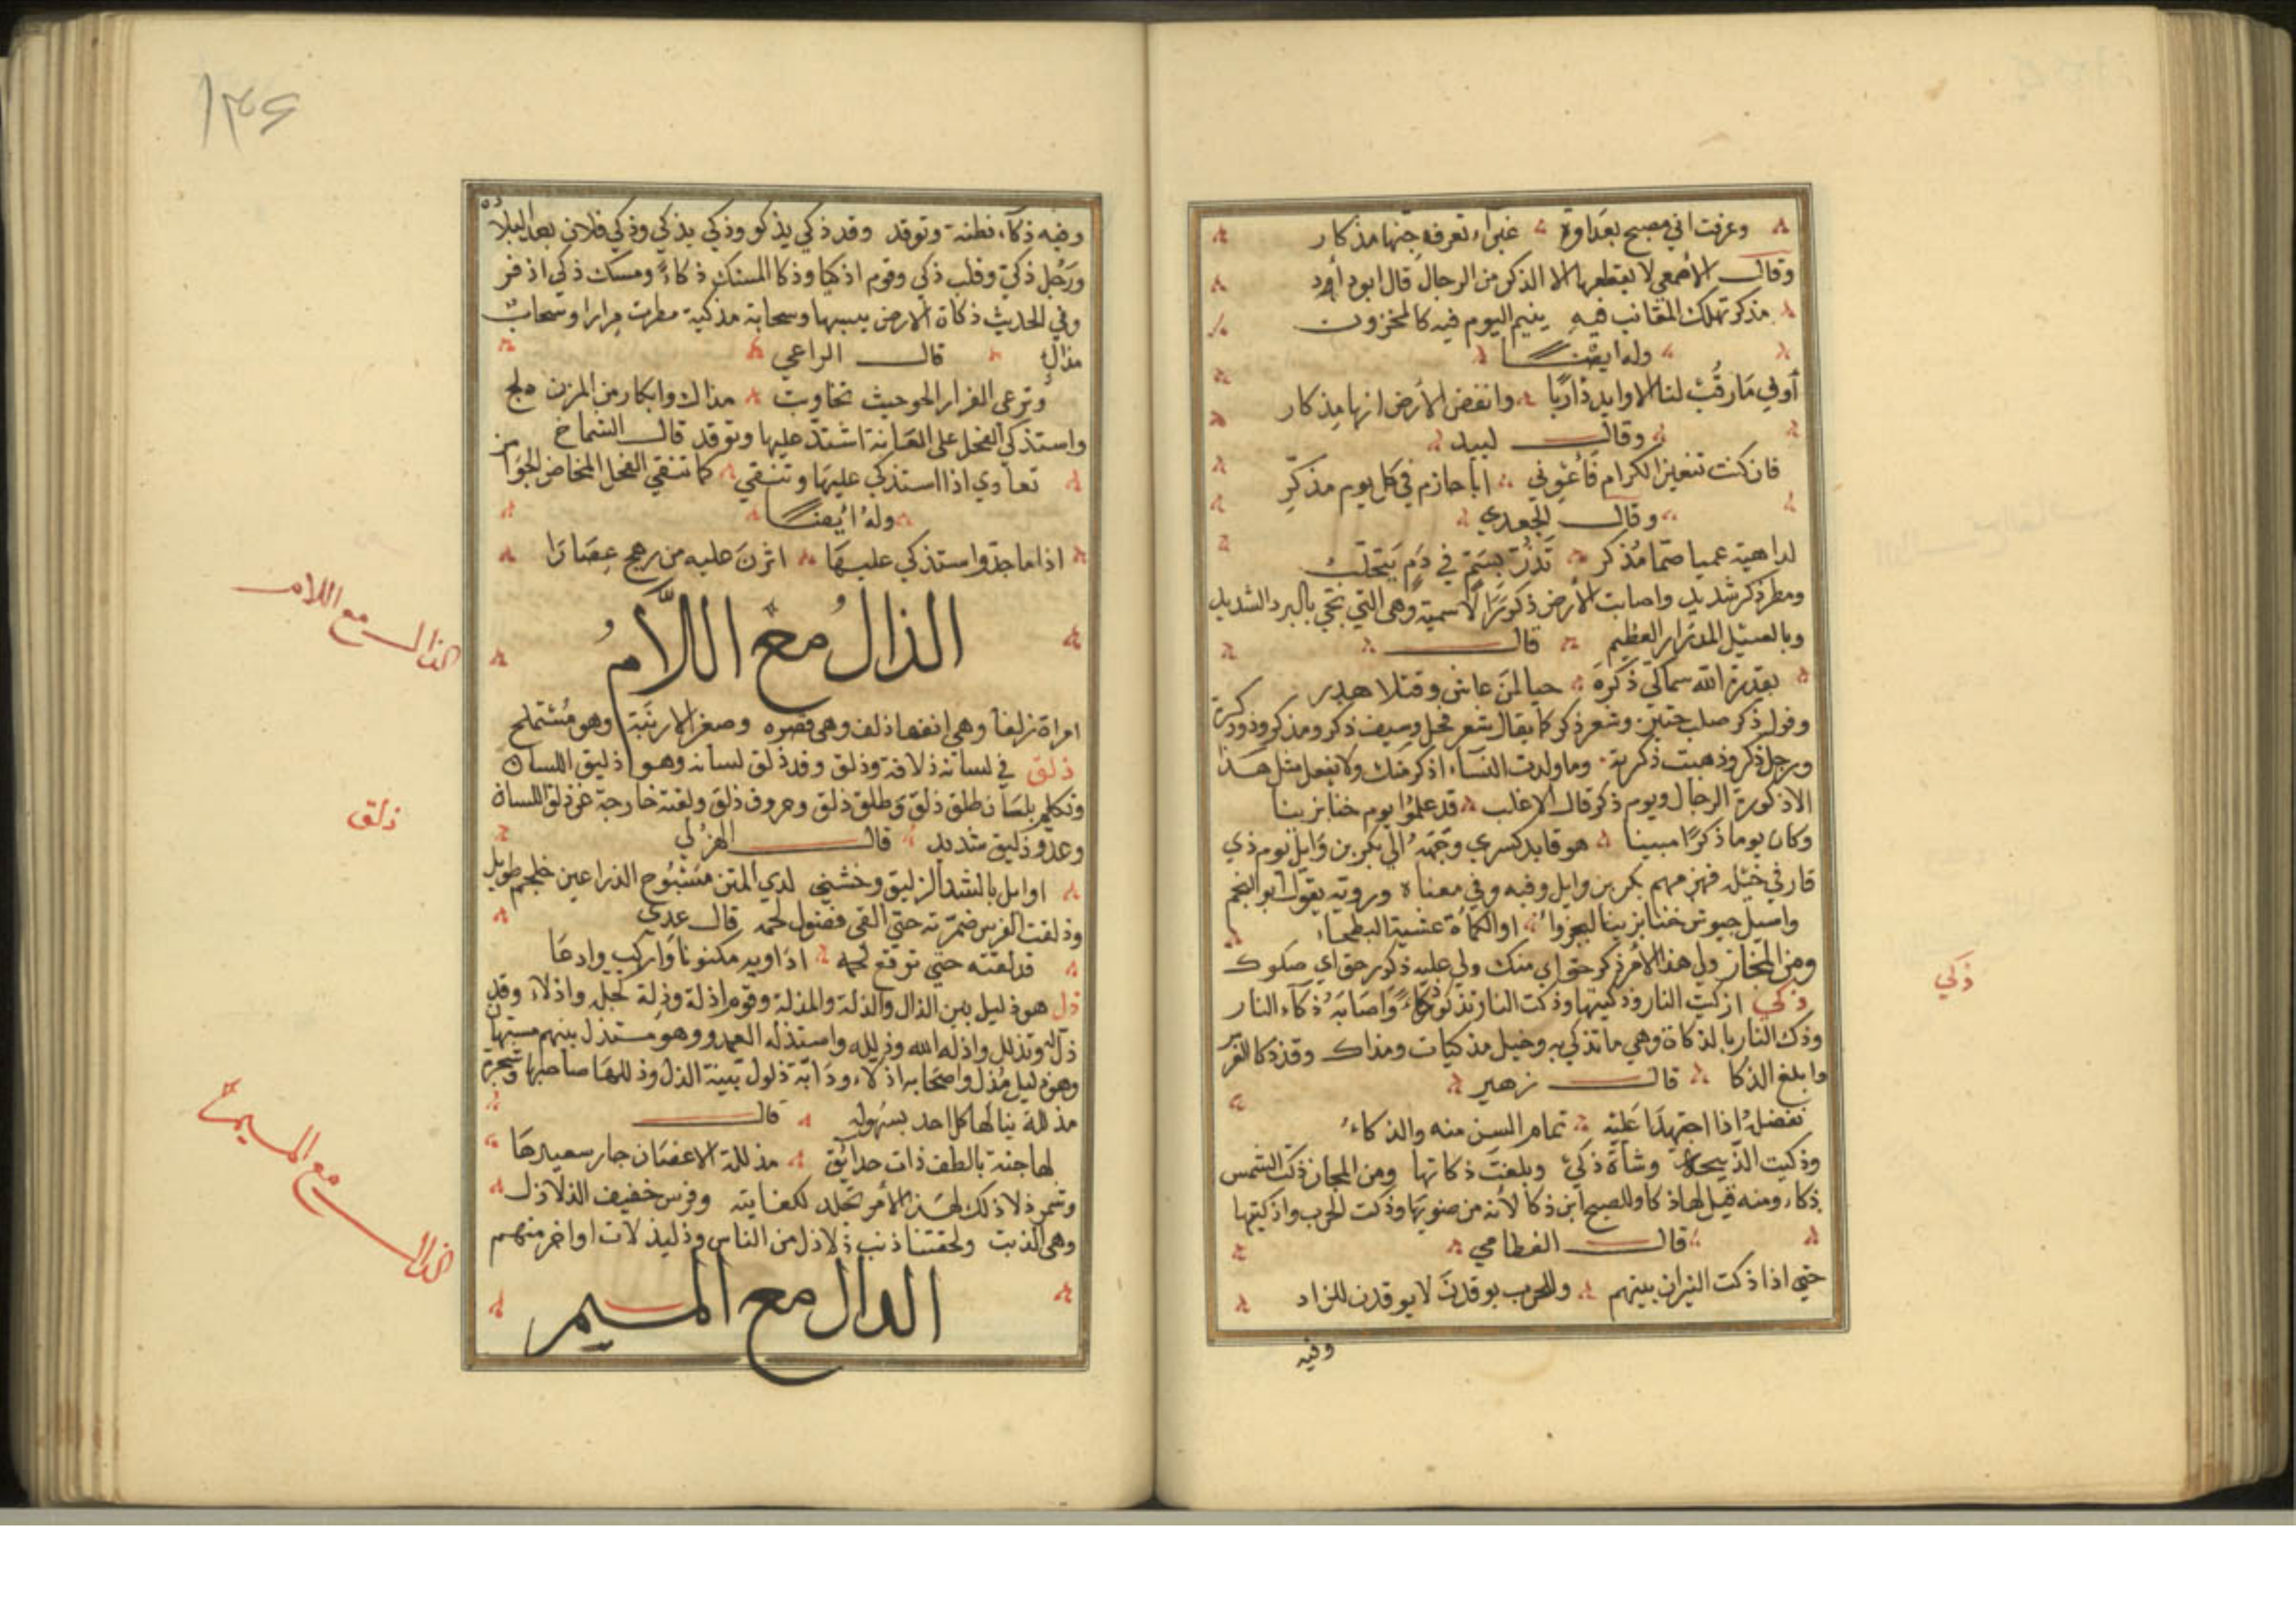 وعرفت اني مصبح بعداوة غبراء تعرف جنها مذكار
وقال الأصمعي لا يقطعها الا الذكر من الرجال قال ابو دأود
مذكر تهلك المقانب فيه ينيم اليوم فيه كالمحزون
وله ايضا
أوفي مارقب لنا الاوابد ذاربا وانفض الأرض انها مذكار
وقال لبيد
فان كنت تبغين الكرام فأعولي أبا حازم في كل يوم مذكر
وقال الجعدي
لداهية عميا صما مذكر تدر بسم في دم يتحلب
ومطر ذكر شديد واصابت الأرض ذكور الاسمية وهي التي تجي بالبرد الشديد
وبالسيل المدرار العظيم قال
بقدرة الله سماكي ذكره حيا لمن عاش وقتلا هدر
وقول ذكر صلب متين وشعر ذكر كما يقال شعر فحل وسيف ذكر ومذكر وذو ذكرة
ورجل ذكر وذهبت ذكرته وما ولدت النساء اذكر منك ولا يفعل مثل هذا
الا ذكورة الرجال ويوم ذكر قال الاغلب قد علموا يوم خنابزينا
وكان يوما ذكرا مبينا هو قايد كسري وجهه الي بكر بن وايل يوم ذي
قار في خيل فهزمهم بكر بن وايل وفيه وفي معناه وروته يقول ابو النجم
واسيل جيوش خنابزينا ليجزوا او الكماة عشية البطحاء
ومن المجاز ولي هذا الأمر ذكر حق اي منك ولي عليه ذكر حق اي صكوك
ذكي اذكيت النار وذكيتها وذكت النار تذكو ذكاء واصابه ذكاء النار
وذك النار بالذكاة وهي ما تذكي به وخيل مذكيات ومذاك وقد ذكا الفرس
وابلغ الذكا قال زهير
تفضله اذا اجتهدا عليه تمام السن منه والذكاء
وذكيت الذبيحة وشاة ذكي وبلغت ذكاتها ومن المجاز ذكت الشمس
ذكاء ومنه قيل لها ذكا وللصبح ابن ذكا لأنه من ضوئها وذكت الحرب واذكيتها
قال القطامي
حتي اذا ذكت النيران بينهم وللحرب يوقدن لا يوقدن للزاد
وفيه
ذكي
١٣٤
وفيه ذكاء فطنة وتوقد وقد ذكي يذكو وذكي يذكي وذكي فلان بعد البلادة
ورجل ذكي وقلب ذكي وقوم اذكيا وذكا المسك ذكاء ومسك ذكي اذفر
وفي الحديث ذكاة الارض يبسها وسحابة مذكية مطرت مرارا وسحاب
مذاك قال الراعي
وترعي القرار الحو حيث تجاوبت مذاك وابكار من المزن دلج
واستذكي الفحل علي العانة اشتد عليها وتوقد قال الشماخ
تعاوي اذا استذكي عليها وتتقي كما تتقي الفحل المخاض الجوامز
وله ايضا
اذا ما جد واستذكي عليها اثرن عليه من رهج عصارا
الذال مع اللام
امراة زلفا وهي انفها ذلف وهي قصره وصغر الارنبة وهو مستملح
ذلق في لسانه ذلاقة وذلق وقد ذلق لسانه وهو ذليق اللسان
وتكلم بلسان طلق ذلق وطلق ذلق وحروف ذلق ولقنه خارجة عن ذلق اللسان
وعدو ذليق شديد قال الهزلي
اوايل بالشد الزليق وحشني لدي المتن مشبوح الذراعين خلجم طويل
وذلفت الفرس ضمرته حتي القي فضول لحمه قال عدي
فذلقته حتي ترفع لحمه اداويه مكنونا واركب وادعا
ذل هو ذليل بين الذال والذلة والمذلة وقوم اذلة وذلة لجبل واذلاء وقد
ذل له وتذلل واذله الله وذلله واستذله العدو وهو مستذل بينهم مستهان
وهو ذليل مذل واصحابه اذلاء ودابة ذلول بينة الذل وذللها صاحبها وشجرة
مذللة ينالها كل احد بسهوله قال
لها جنة بالطف ذات حدائق مذللة الاغصان جار سعيدها
وشمر ذلاذلك لهذا الأمر تجلد لكفايته وفرس خفيف الذلاذل
وهي الذنب ولحقتنا ذنب ذلاذل من الناس وذليذلات اواخر منهم
الدال مع الميم
الذال مع اللام
ذلق
الذال مع الميم